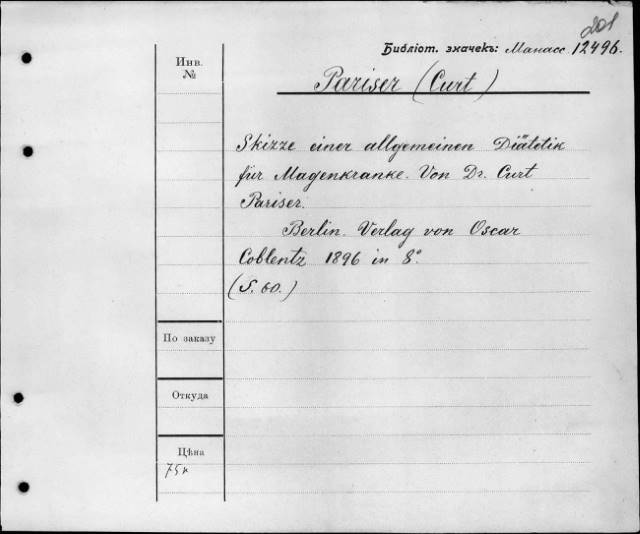 201
Библіот. значекъ: Манасс. 12496.
Инв.
№
Pariser (Curt)
Skizze einer allgemeinen Diätetik
für Magenkranke. Von Dr. Curt
Pariser.
Berlin. Verlag von Oscar
Coblentz 1896 in 8°
(S. 60.)
По заказу
Откуда
Цѣна
75к